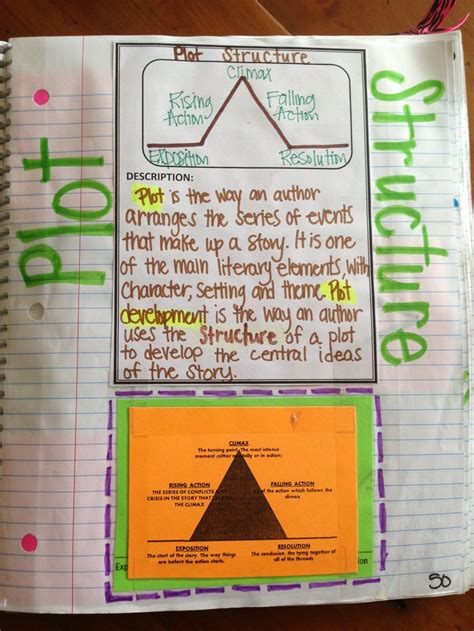 Plot
Structure
Plot Structure
Climax
Rising
Action
Falling
Action
Exposition
Resolution
DESCRIPTION:
Plot is the way an author
arranges the series of events
that make up a story. It is one
of the main literary elements, with
Character, Setting and theme. Plot
development is the way an author
uses the Structure of a plot
to develop the central ideas
of the Story.
CLIMAX
The turning point. The most intense
moment (either or in action)
RISING ACTION
THE SERIES OF CONFLICTS
CRISIS IN THE STORY THAT
THE CLIMAX
FALLING ACTION
of the action which follows the
climax.
EXPOSITION
The start of the story. The way things
are before the action starts.
RESOLUTION
The conclusion, the tying together of
all of the threads.
50